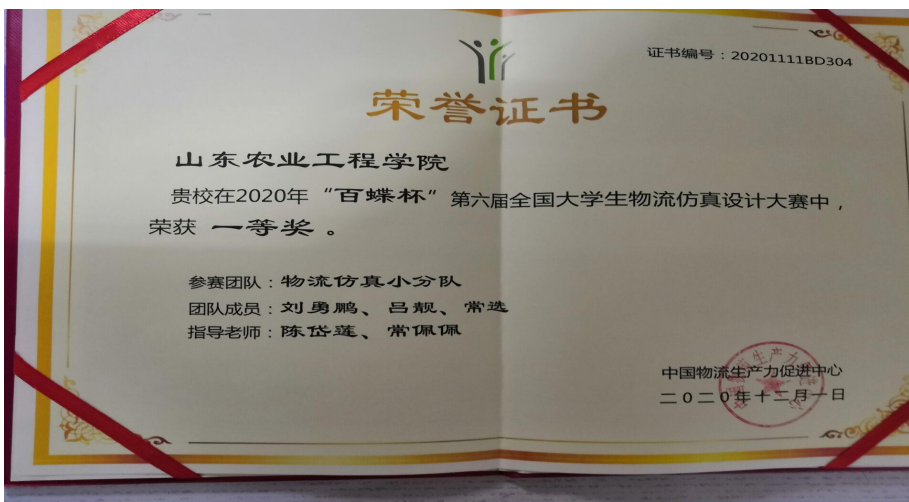 证书编号：20201111BD304
荣誉证书
山东农业工程学院
贵校在2020年“百蝶杯”第六届全国大学生物流仿真设计大赛中，
荣获 一等奖 。
参赛团队：物流仿真小分队
团队成员：刘勇鹏、吕靓、常选
指导老师：陈岱莲、常佩佩
中国物流生产力促进中心
二〇二〇年十二月一日